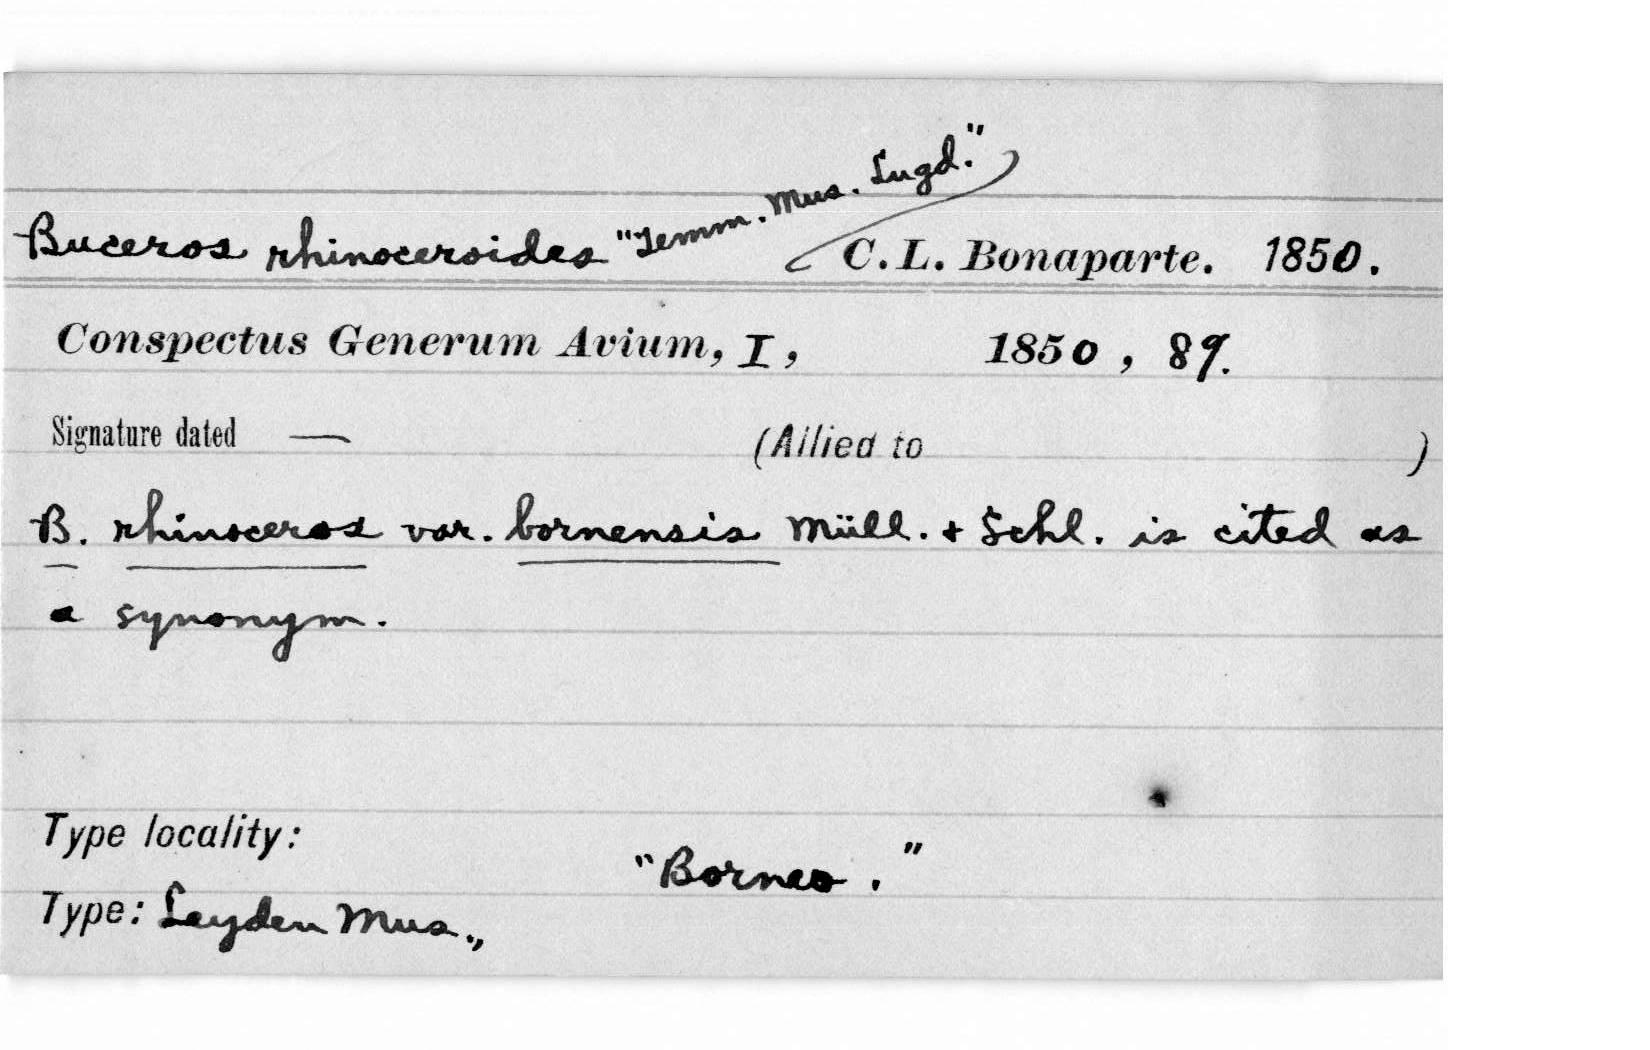 Buceros rhinoceroides "Temm. Mus. Lugd." C. L. Bonaparte. 1850.
Conspectus Generum Avium, I, 1850, 89.
Signature dated — (Allied to )
B. rhinoceros var. bornensis Müll. + Schl. is cited as
a synonym.
Type locality:
"Borneo."
Type: Leyden Mus.,